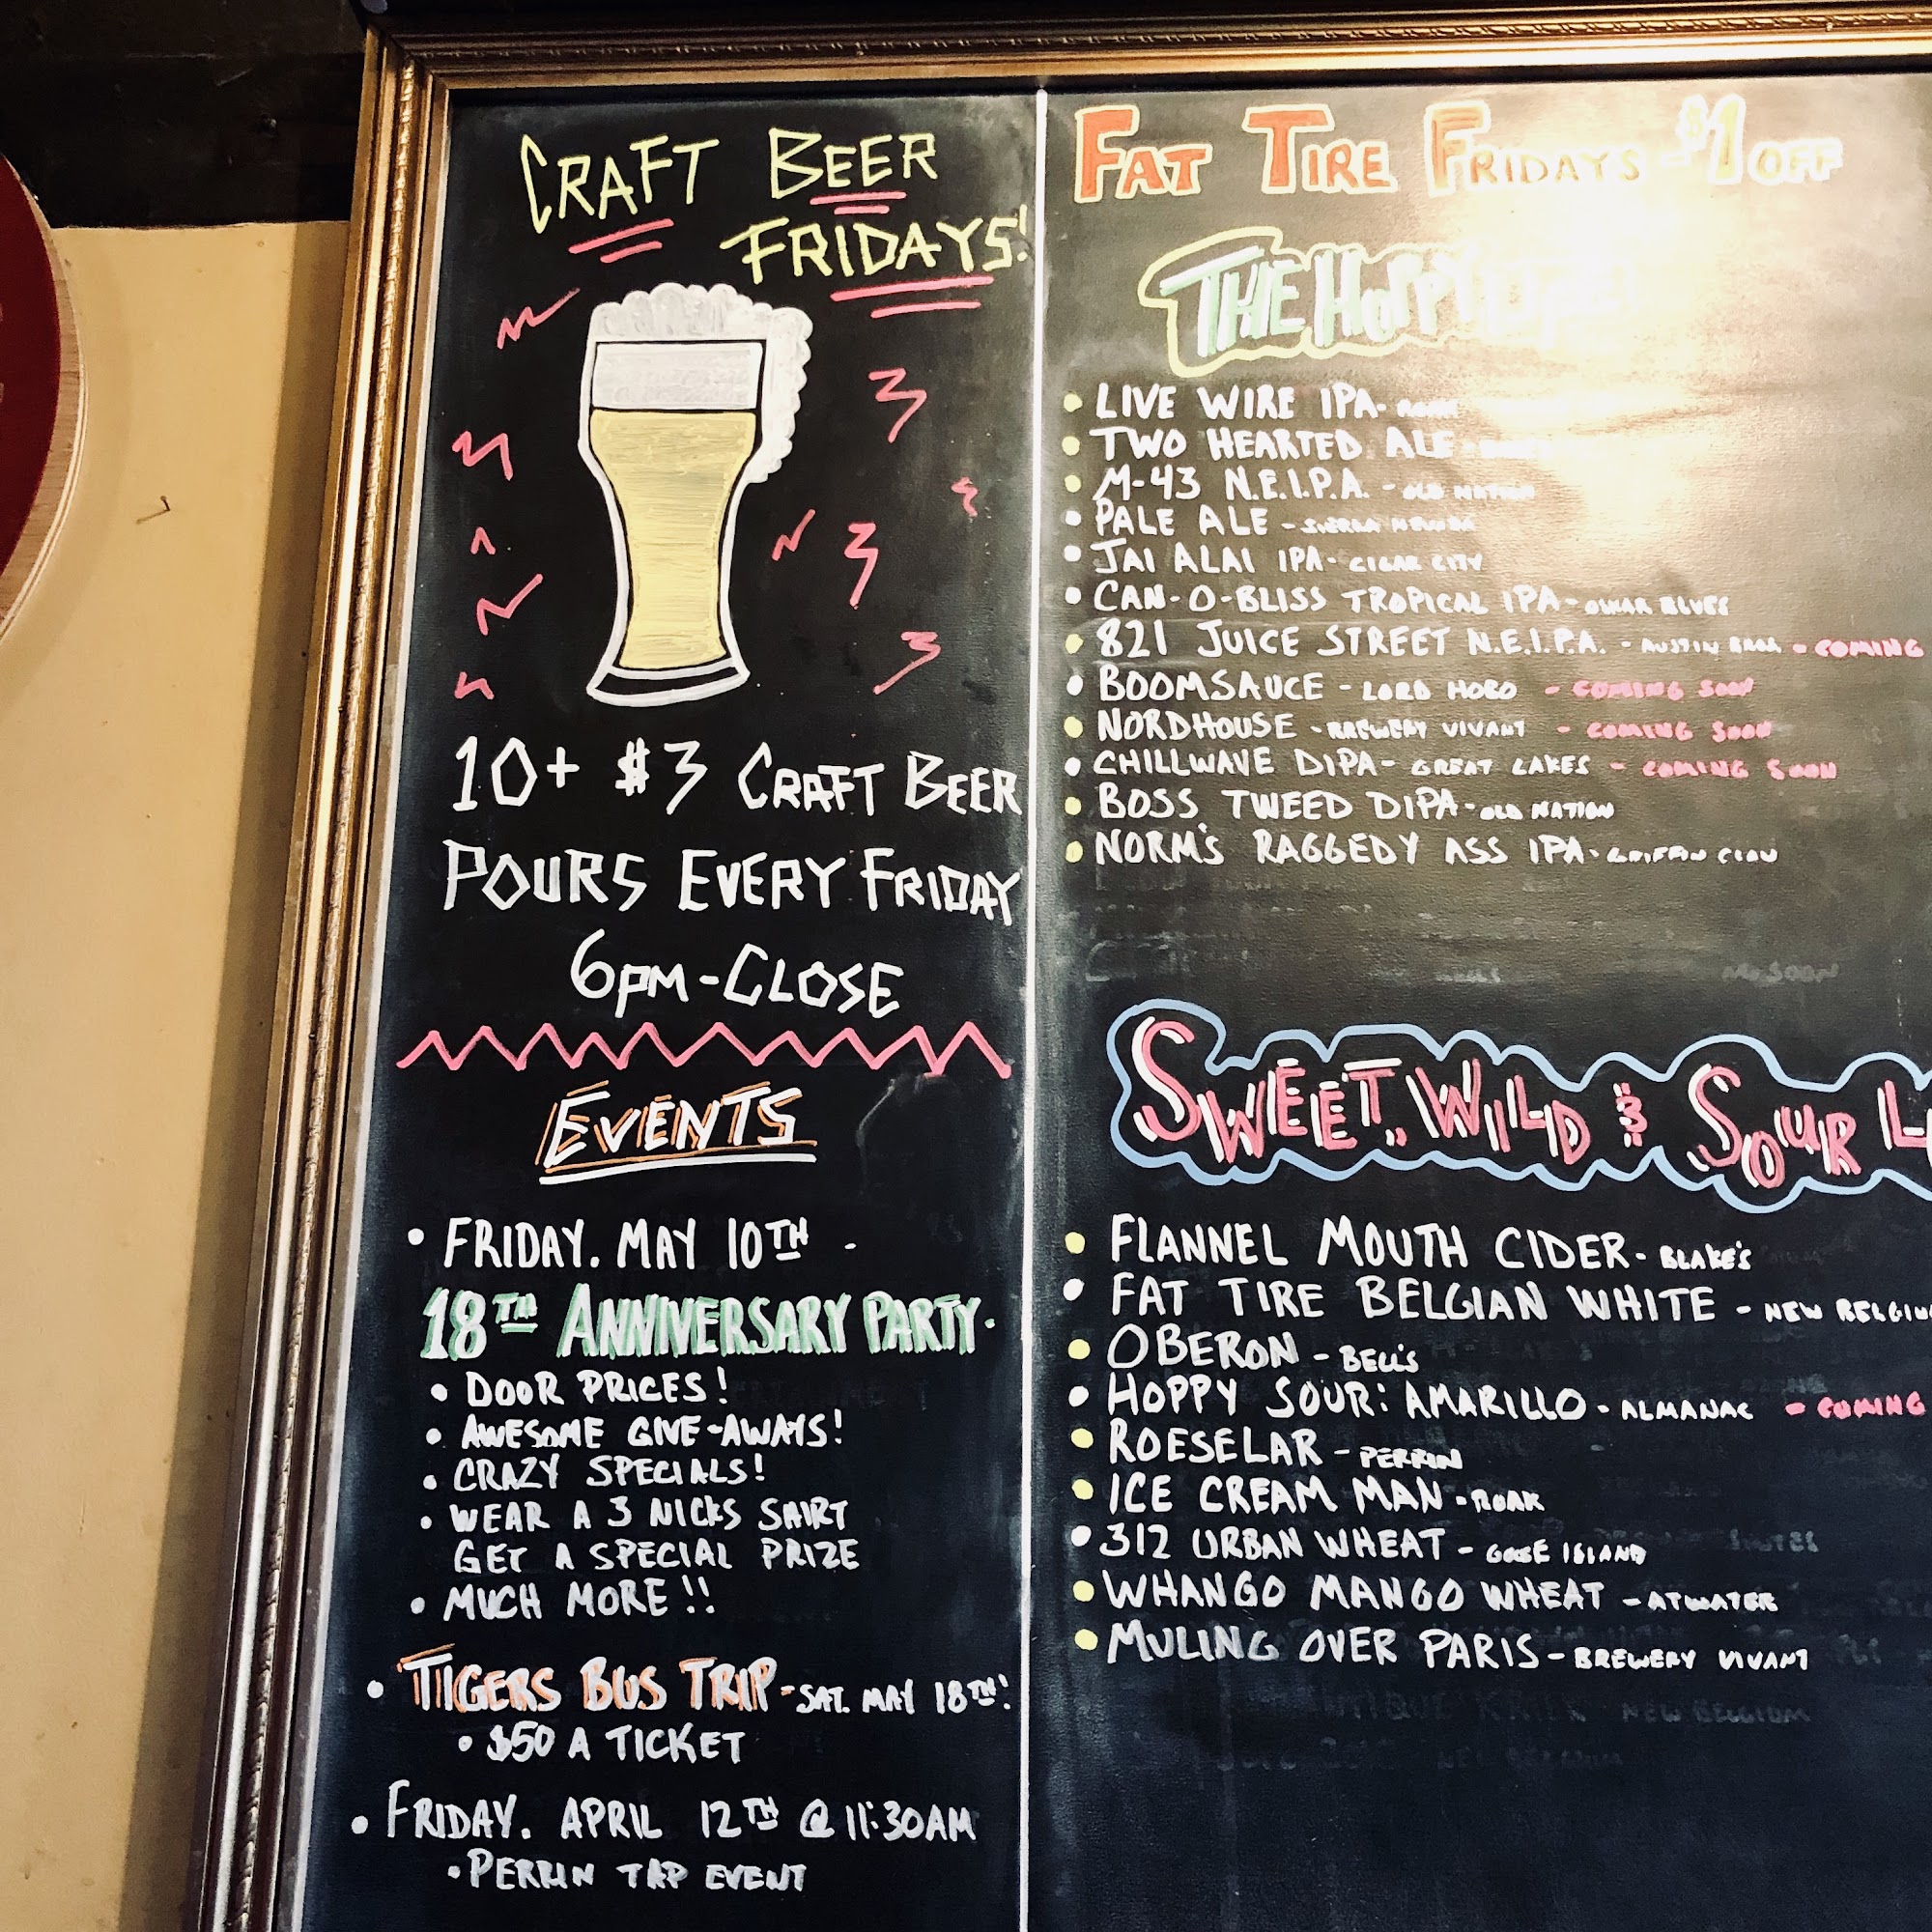 CRAFT BEER
FRIDAYS!
10+ $3 CRAFT BEER
POURS EVERY FRIDAY
6PM-CLOSE
EVENTS
• FRIDAY. MAY 10TH -
18TH ANNIVERSARY PARTY.
• DOOR PRICES!
• AWESOME GIVE-AWAYS!
• CRAZY SPECIALS!
• WEAR A 3 NICKS SHIRT
GET A SPECIAL PRIZE
• MUCH MORE!!
• TIGERS BUS TRIP - SAT. MAY 18TH!
• $50 A TICKET
• FRIDAY. APRIL 12TH @ 11:30AM
• PERRIN TAP EVENT
FAT TIRE FRIDAYS - $1 OFF
THE HOPPY
• LIVE WIRE IPA - ROAK
• TWO HEARTED ALE -
• M-43 N.E.I.P.A. - OLD NATION
• PALE ALE - SIERRA NEVADA
• JAI ALAI IPA - CIGAR CITY
• CAN-O-BLISS TROPICAL IPA - OSKAR BLUES
• 821 JUICE STREET N.E.I.P.A. - AUSTIN BROS. - COMING
• BOOMSAUCE - LORD HOBO - COMING SOON
• NORDHOUSE - BREWERY VIVANT - COMING SOON
• CHILLWAVE DIPA - GREAT LAKES - COMING SOON
• BOSS TWEED DIPA - OLD NATION
• NORM'S RAGGEDY ASS IPA - GRIFFIN CLAW
SWEET, WILD & SOUR L
• FLANNEL MOUTH CIDER - BLAKE'S
• FAT TIRE BELGIAN WHITE - NEW BELGIUM
• OBERON - BELL'S
• HOPPY SOUR: AMARILLO - ALMANAC - COMING
• ROESELAR - PERRIN
• ICE CREAM MAN - ROAK
• 312 URBAN WHEAT - GOOSE ISLAND
• WHANGO MANGO WHEAT - ATWATER
• MULING OVER PARIS - BREWERY VIVANT